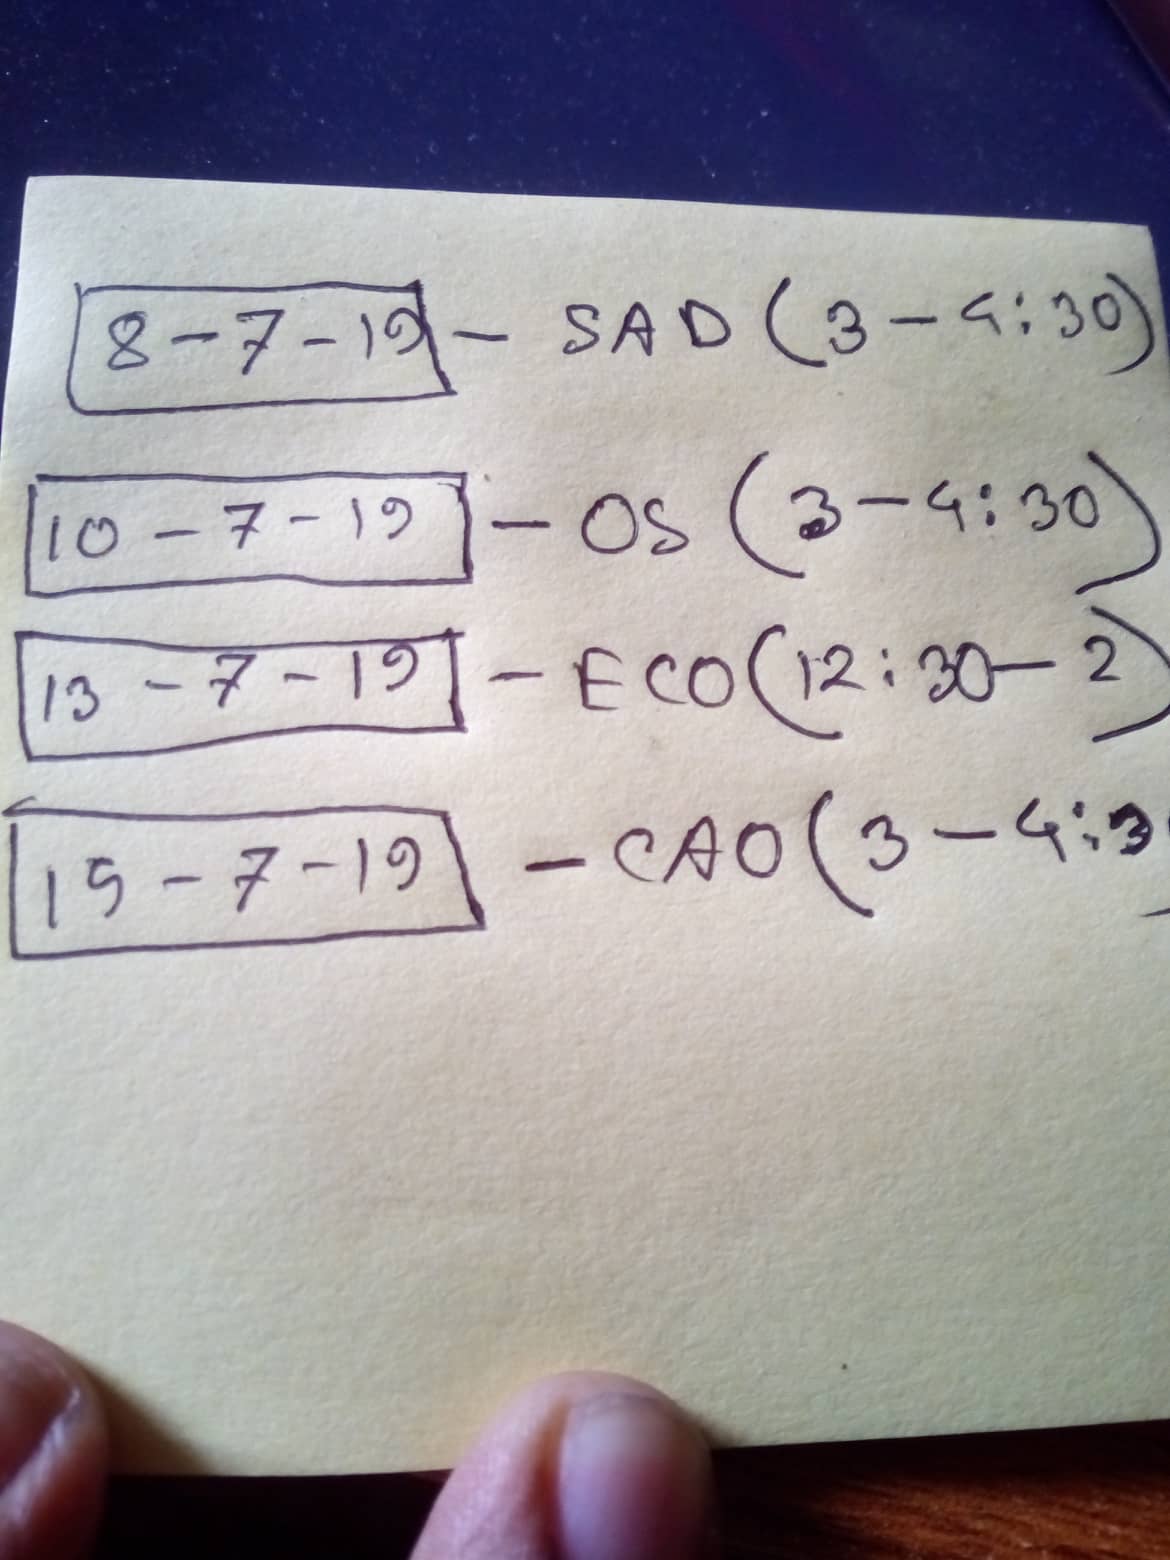 8-7-19 - SAD (3-4:30)
10-7-19 - OS (3-4:30)
13-7-19 - ECO (12:30-2)
15-7-19 - CAO (3-4:3